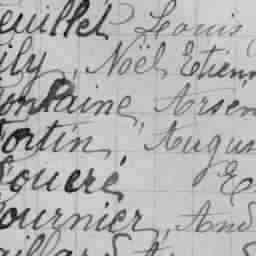 euillet Louis,
ily, Noël Etienn
ontaine, Arsen
ortin, Augus
ouéré, E
ournier, And